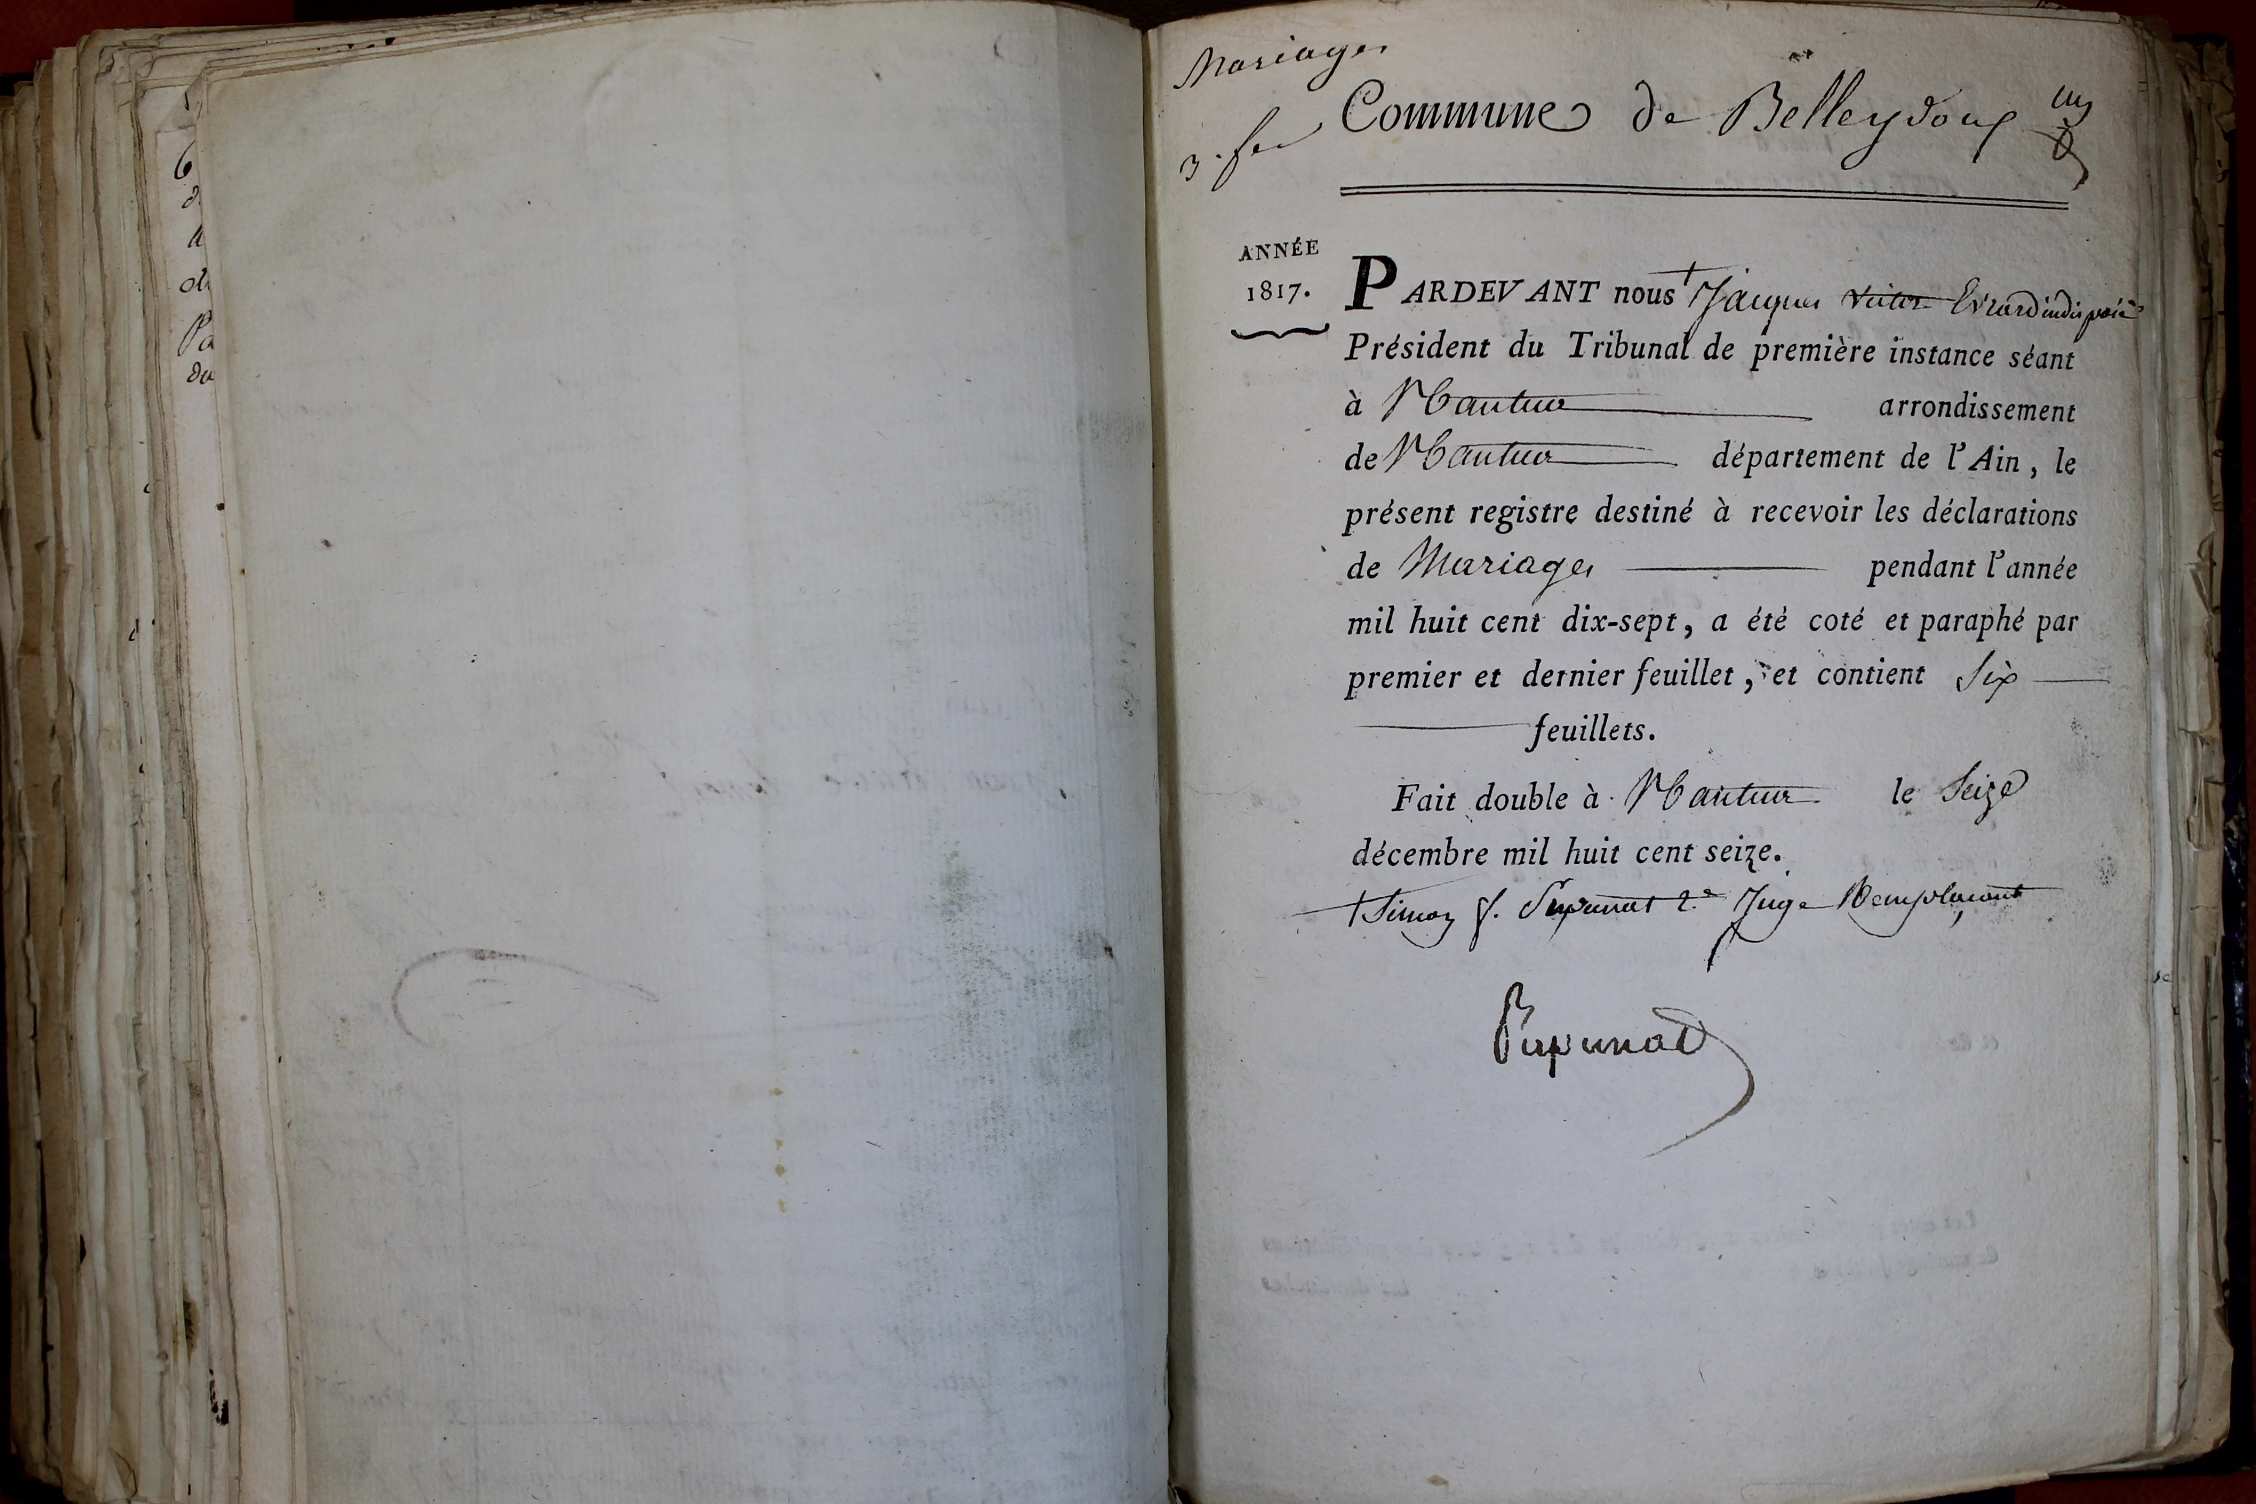 Mariages
Commune de Belleydoux un
3. fer
ANNÉE
1817.
PARDEVANT nous Jacques Victor Evrard indisposé
Président du Tribunal de première instance séant
à Nantua arrondissement
de Nantua département de l'Ain, le
présent registre destiné à recevoir les déclarations
de Mariages pendant l'année
mil huit cent dix-sept, a été coté et paraphé par
premier et dernier feuillet, et contient Six
feuillets.
Fait double à Nantua le Seize
décembre mil huit cent seize.
+ Simon f. Pupunat 2e Juge Remplaçant
Pupunat